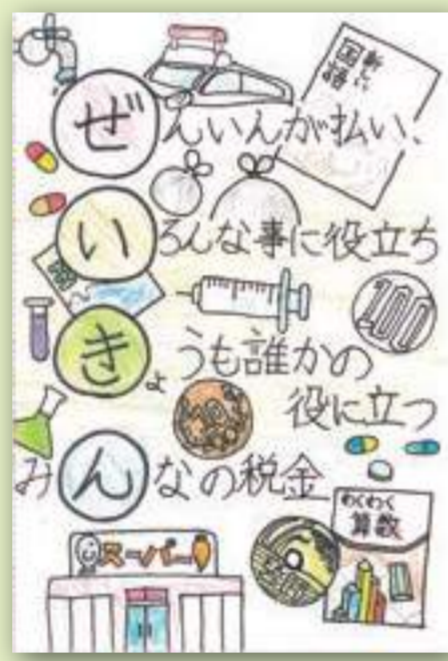 新しい国語
ぜんいんが払い、
いろんな事に役立ち
100
きょうも誰かの
役に立つ
10
みんなの税金
わくわく
算数
スーパー